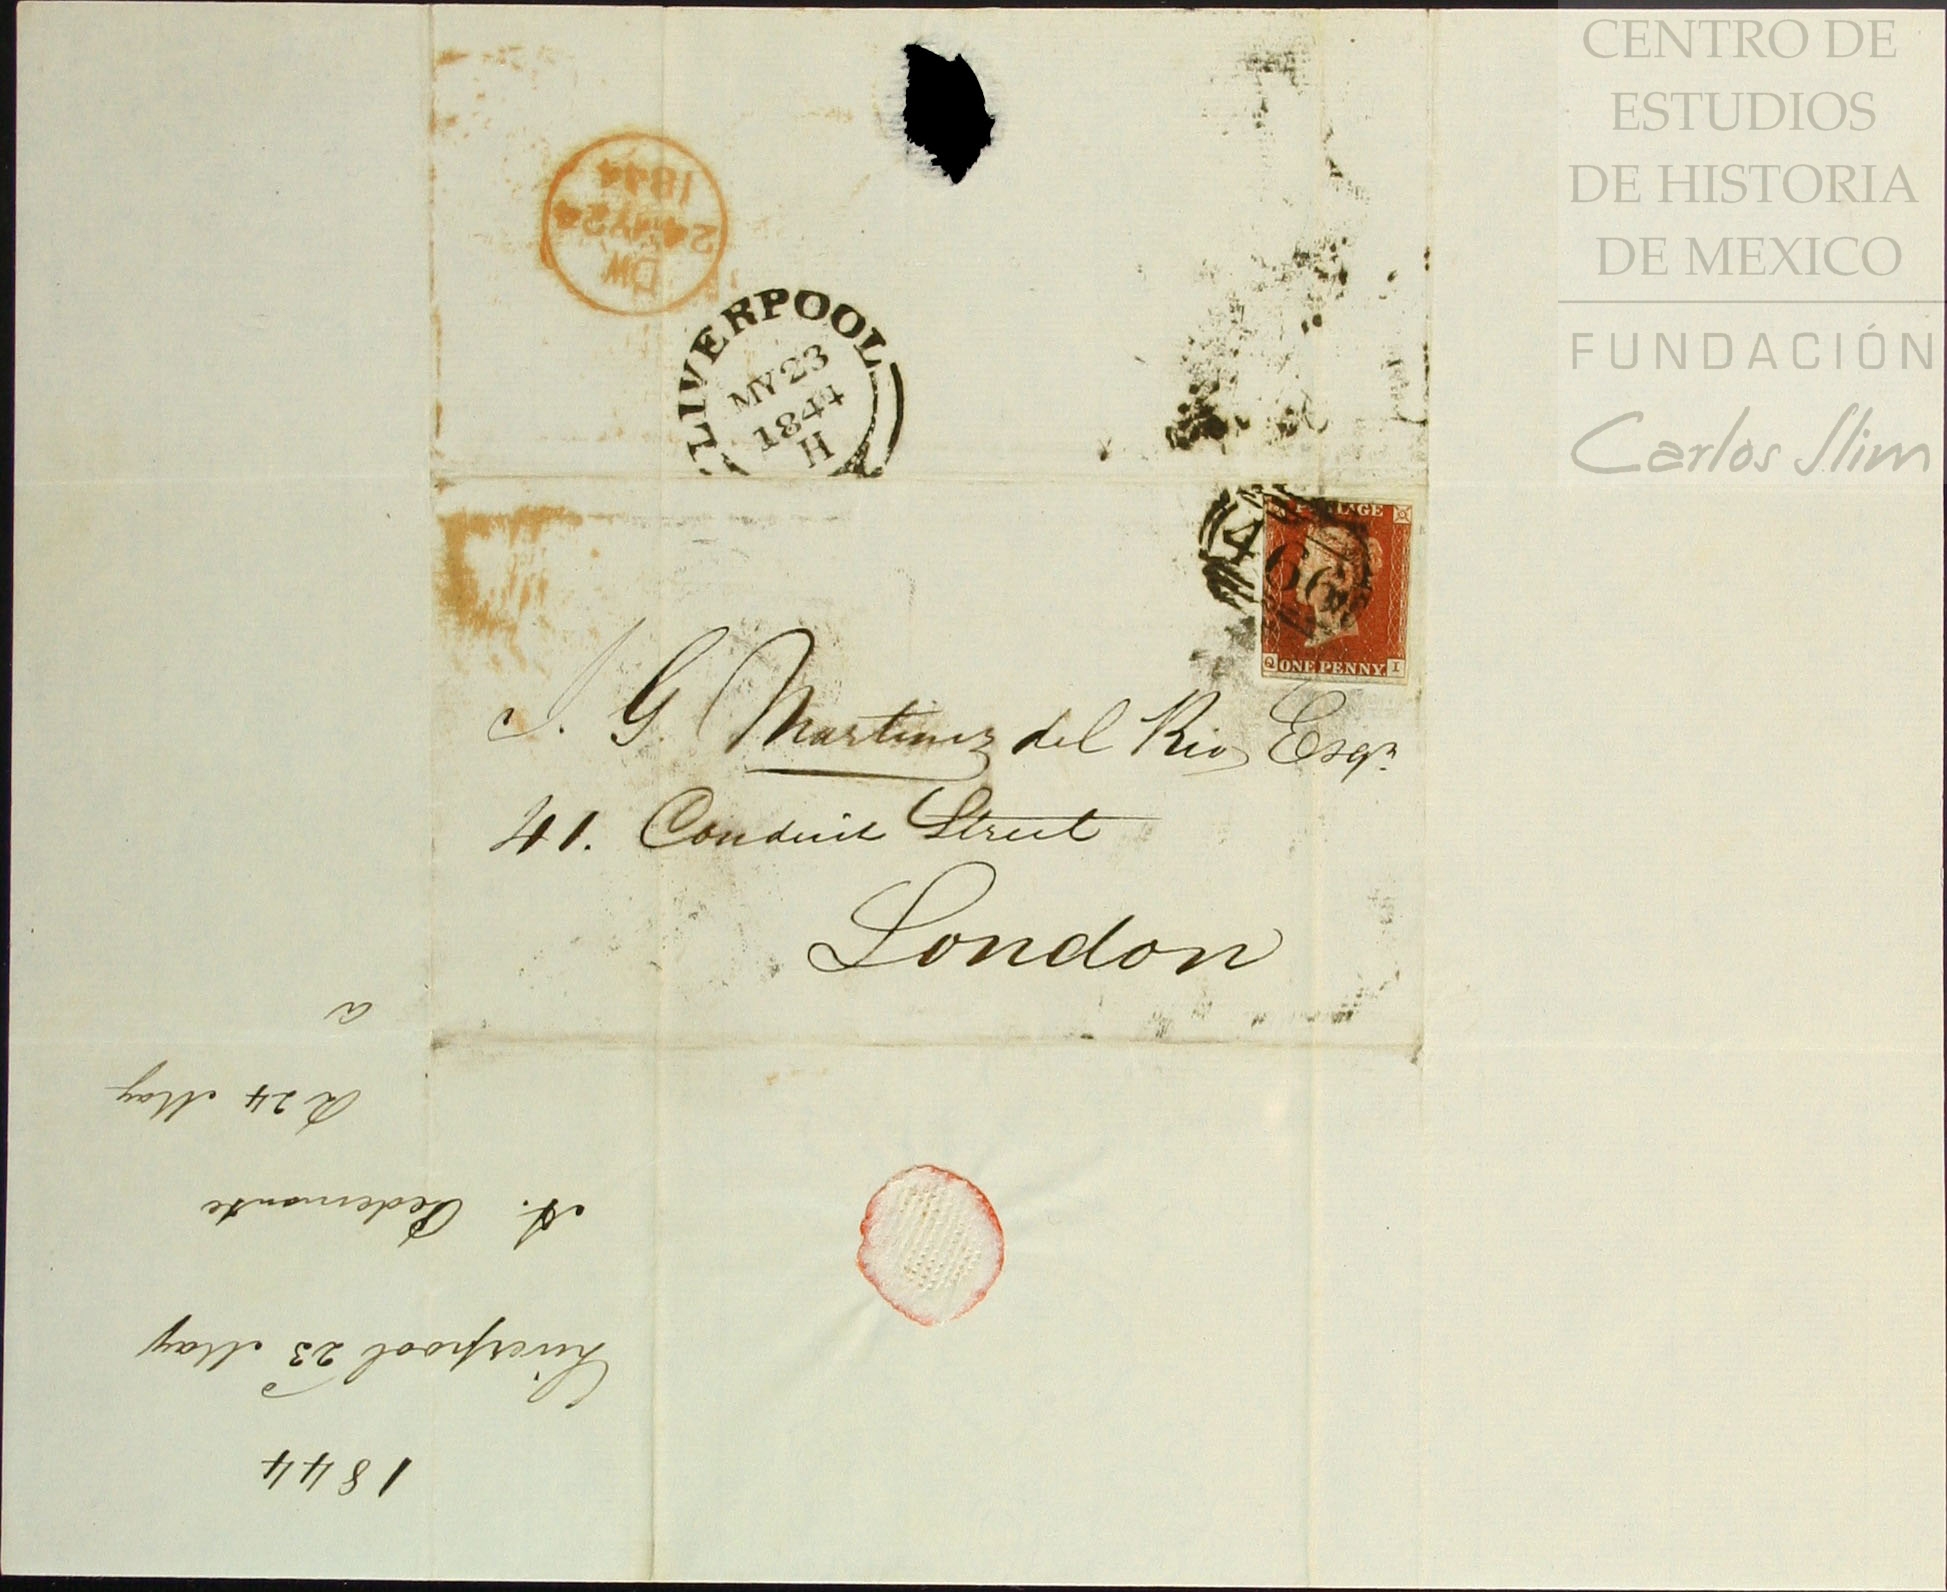 CENTRO DE
ESTUDIOS
DE HISTORIA
DE MEXICO
FUNDACIÓN
Carlos Slim
DW
24MY24
1844
LIVERPOOL
MY 23
1844
H
466
POSTAGE
ONE PENNY.
Q I
J. G. Martinez del Rio Esqr
41. Conduit Street
London
1844
Liverpool 23 May
A. Pedemonte
R 24 May
a